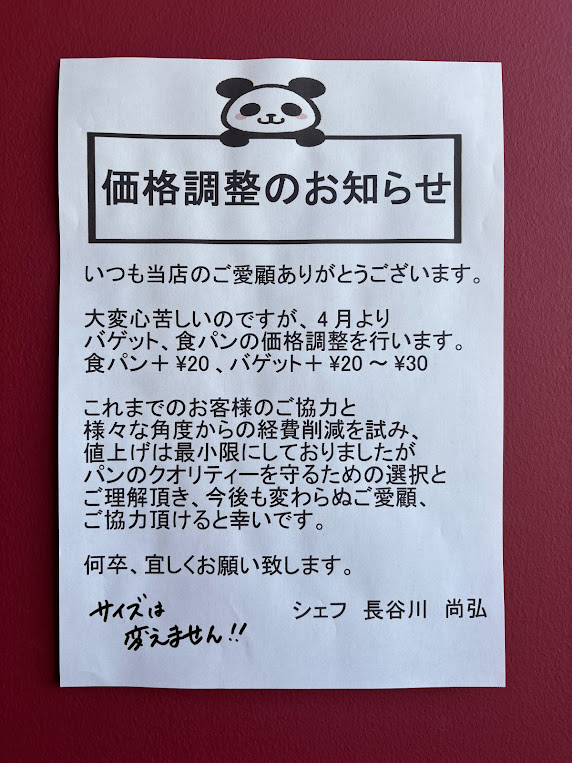 価格調整のお知らせ
いつも当店のご愛顧ありがとうございます。
大変心苦しいのですが、4月より
バゲット、食パンの価格調整を行います。
食パン＋¥20、バゲット＋¥20～¥30
これまでのお客様のご協力と
様々な角度からの経費削減を試み、
値上げは最小限にしておりましたが
パンのクオリティーを守るための選択と
ご理解頂き、今後も変わらぬご愛顧、
ご協力頂けると幸いです。
何卒、宜しくお願い致します。
シェフ　長谷川　尚弘
サイズは
変えません!!